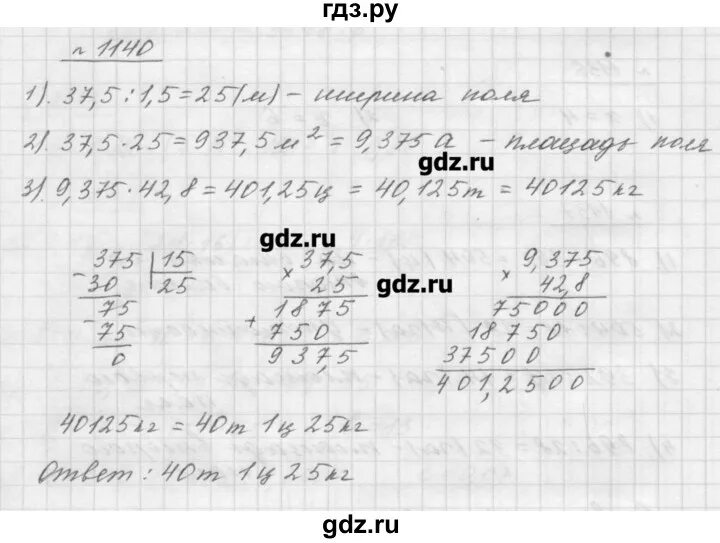 гдз.ру
n 1140
1). 37,5 : 1,5 = 25 (м) - ширина поля
2). 37,5 · 25 = 937,5 м² = 9,375 а - площадь поля
3). 9,375 · 42,8 = 401,25 ц = 40,125 т = 40125 кг
gdz.ru
gdz.ru
gdz.ru
375 | 15
- 30 | 25
75
- 75
0
× 37,5
25
1875
+ 750
937,5
× 9,375
42,8
75000
18750
37500
401,2500
40125 кг = 40 т 1 ц 25 кг
Ответ : 40 т 1 ц 25 кг
gdz.ru